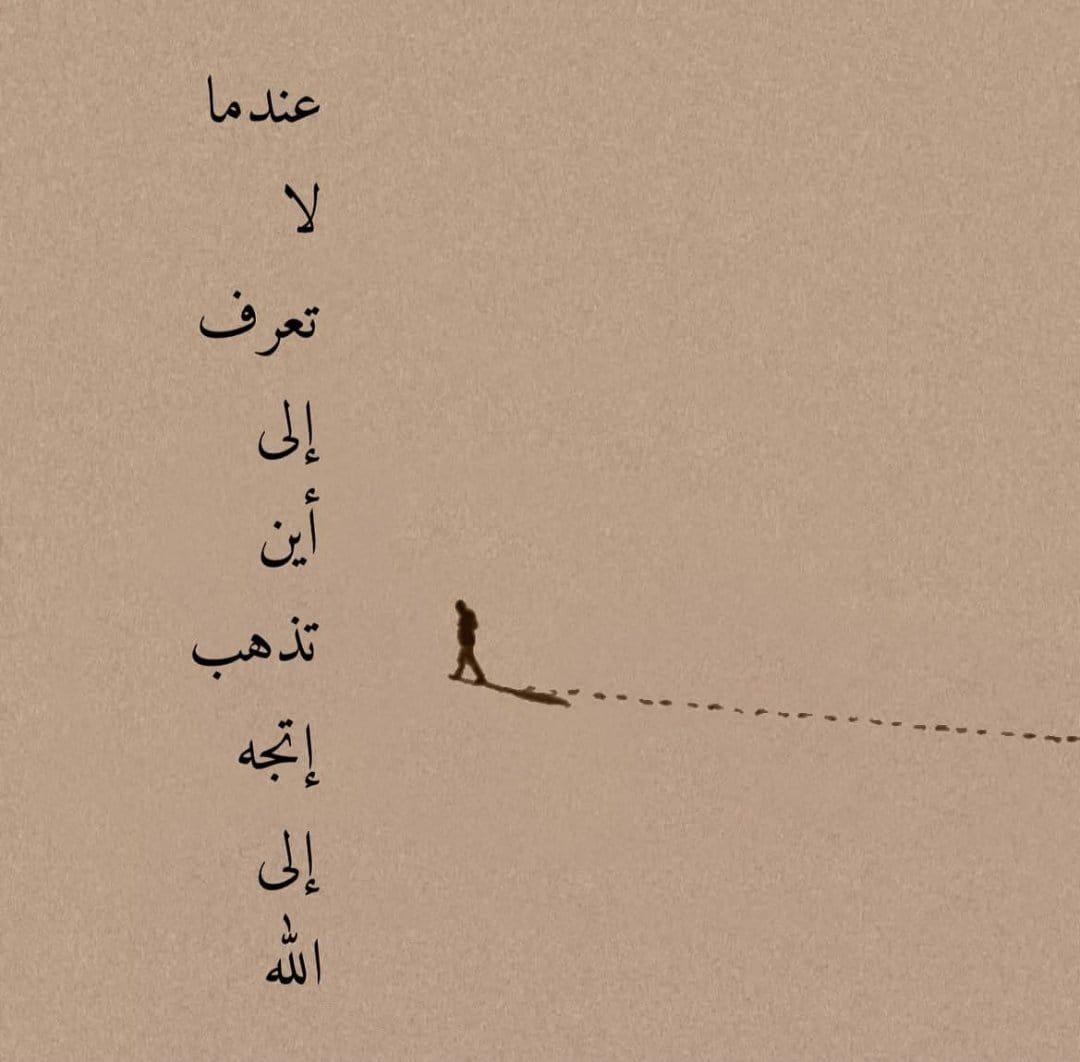 عندما
لا
تعرف
إلى
أين
تذهب
إتجه
إلى
الله